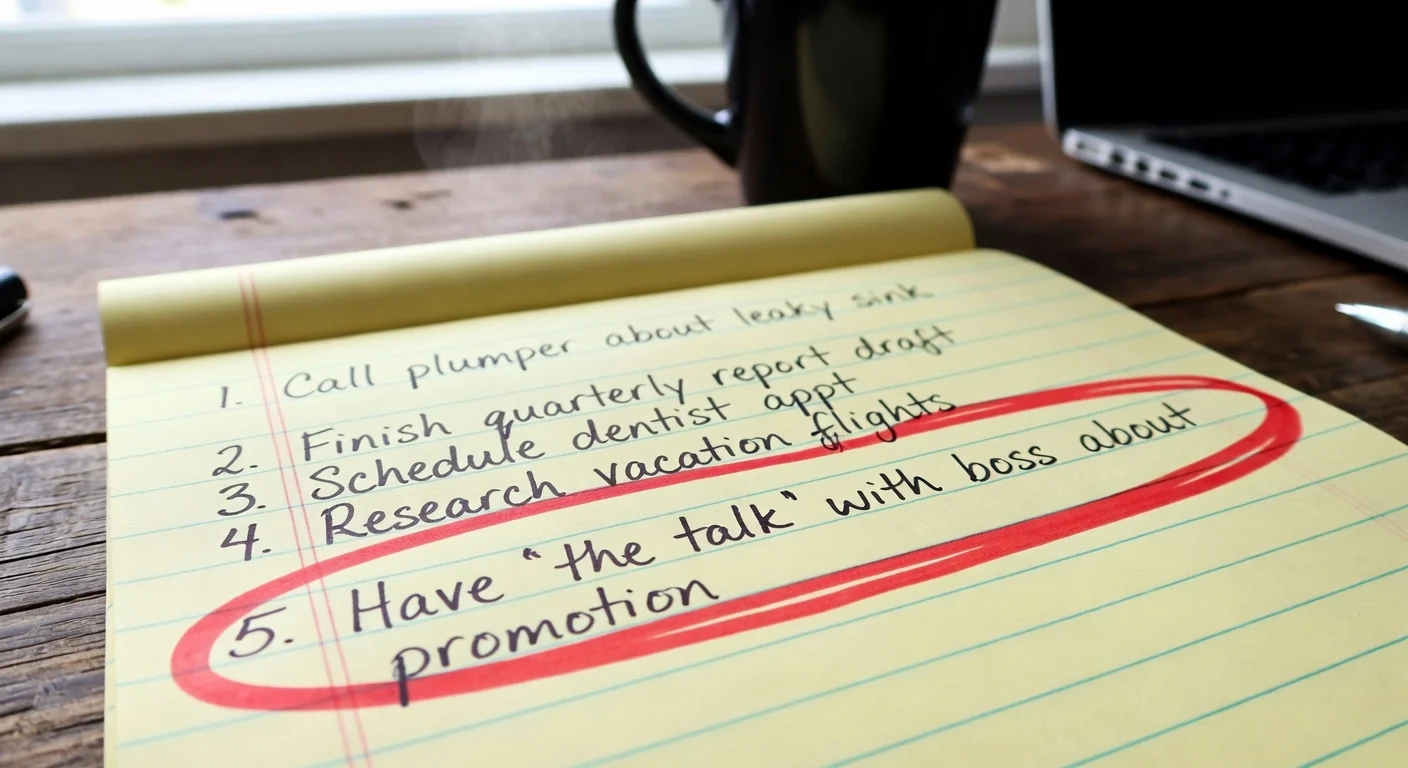 1. Call plumper about leaky sink
2. Finish quarterly report draft
3. Schedule dentist appt
4. Research vacation flights
5. Have "the talk" with boss about
promotion